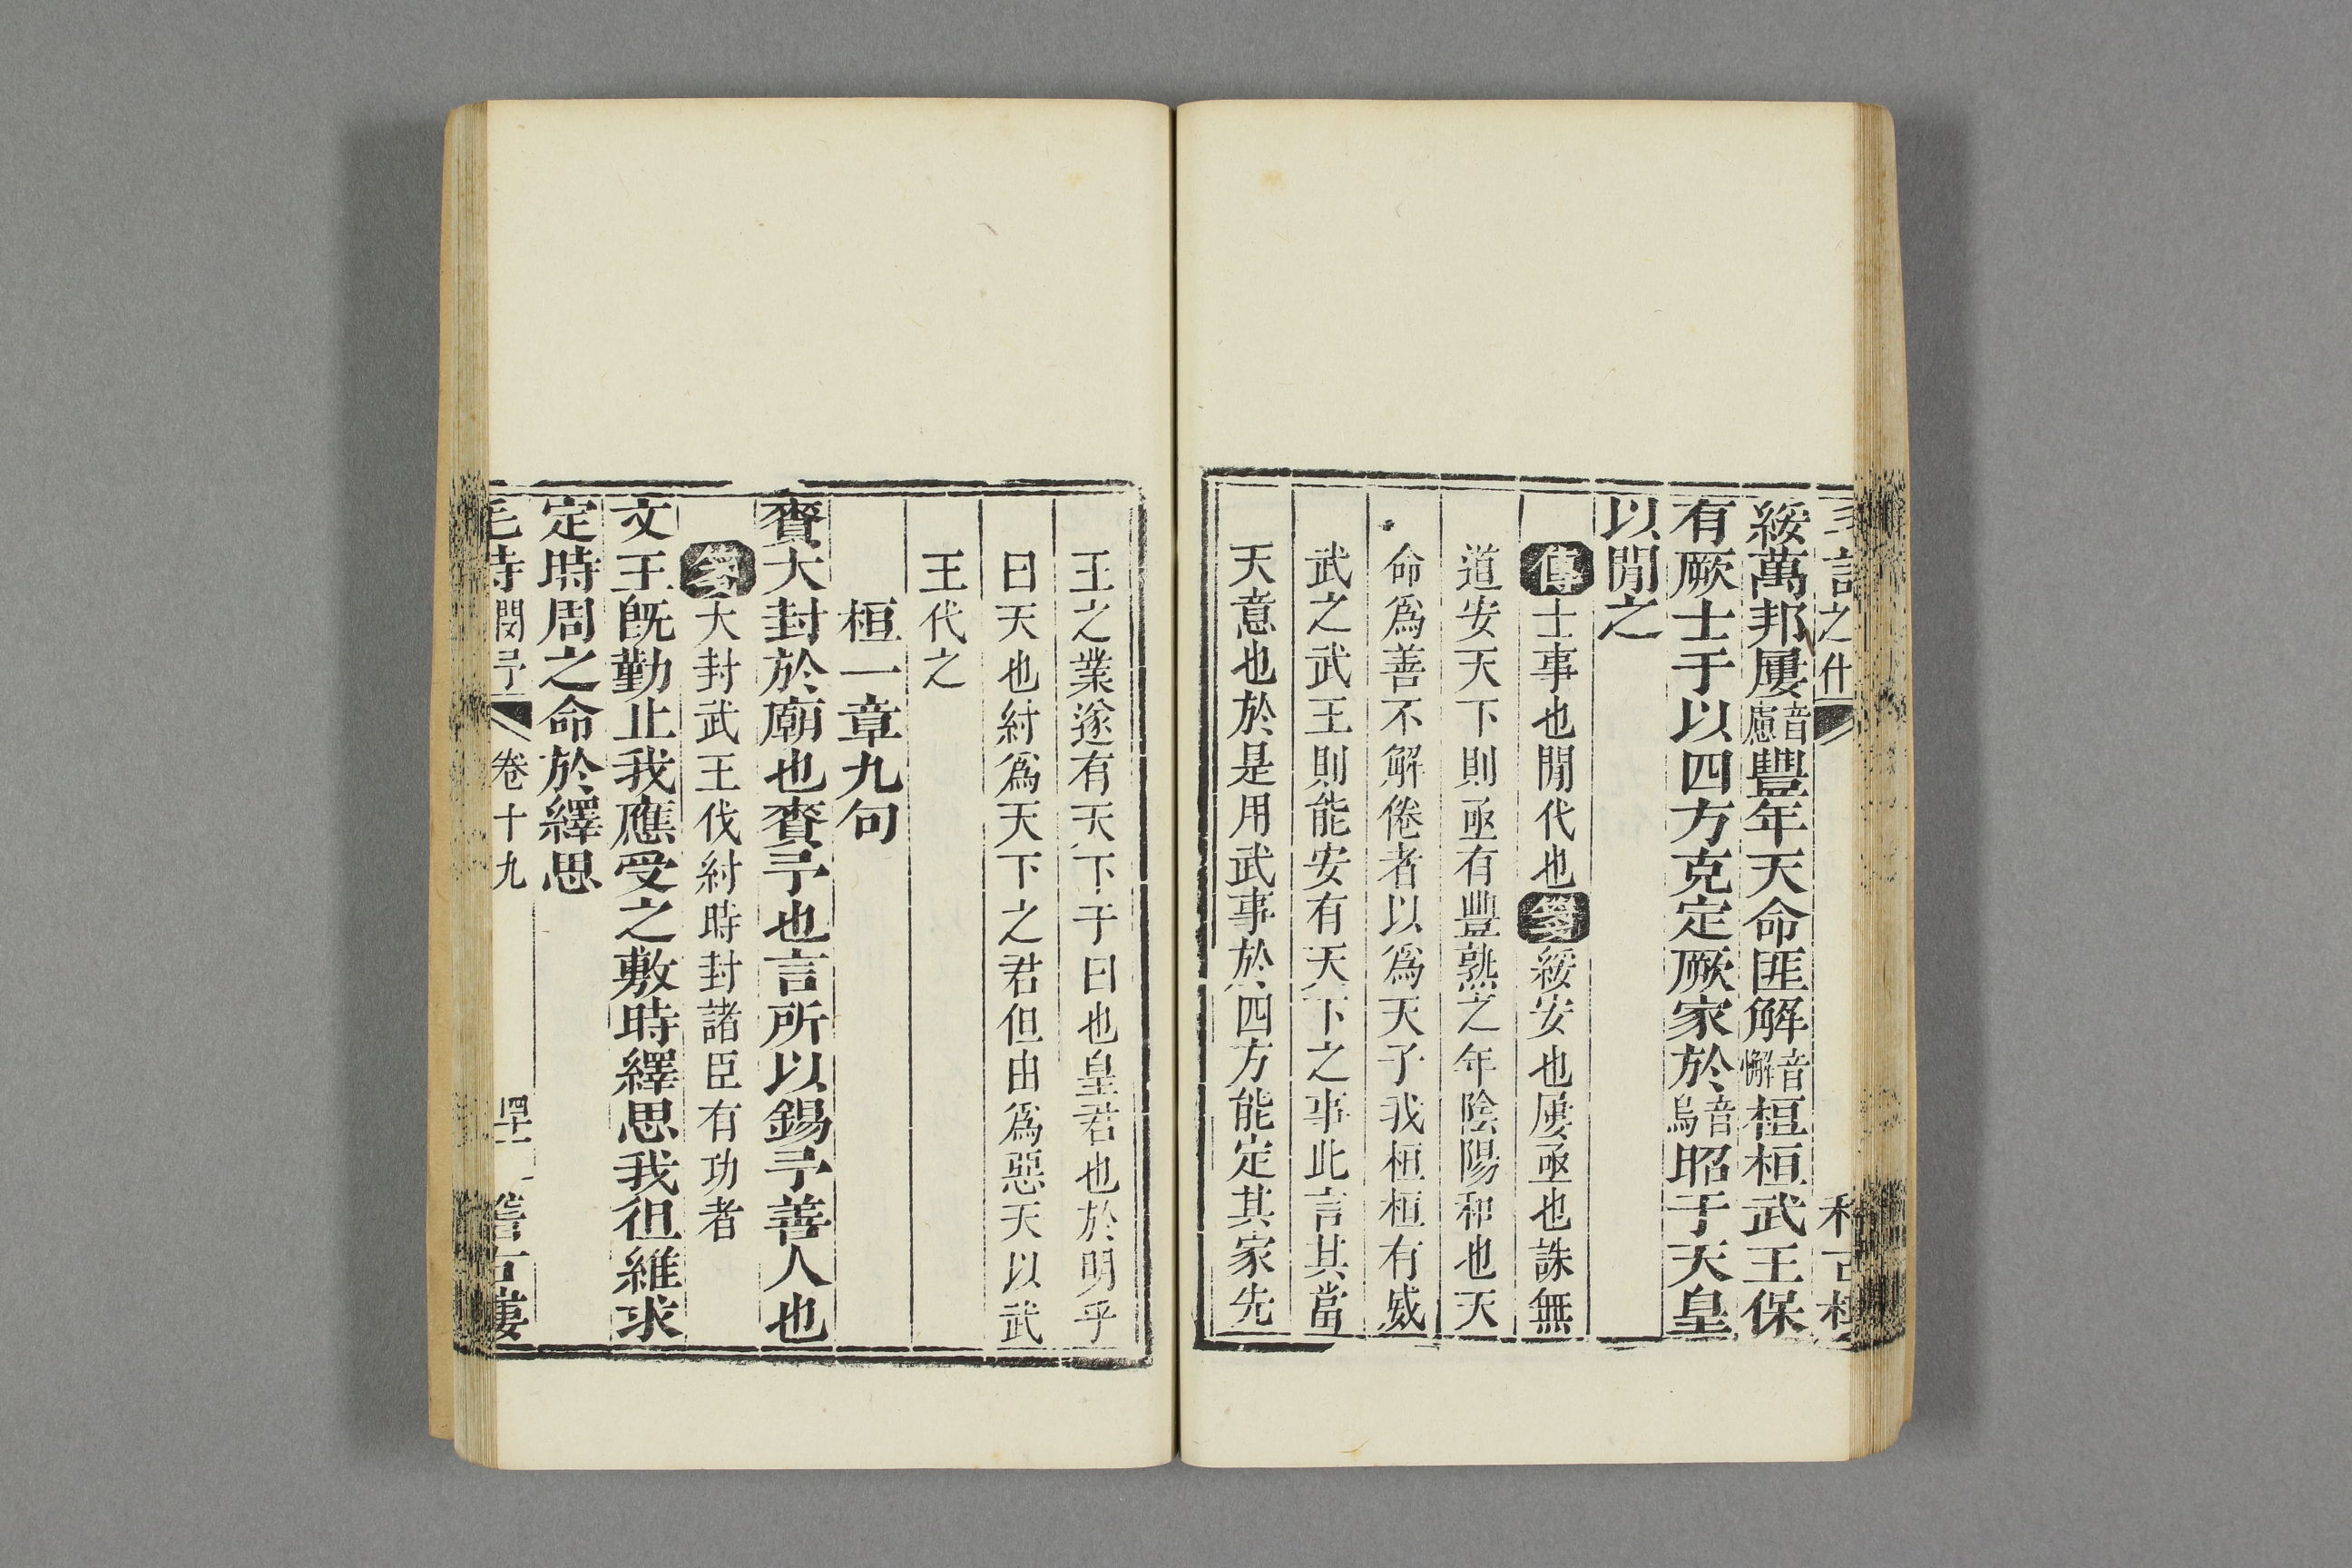 綏萬邦屢音慮豐年天命匪解音懈桓桓武王保
有厥士于以四方克定厥家於音烏昭于天皇
以閒之
傳士事也閒代也箋綏安也屢亟也誅無
道安天下則亟有豐熟之年陰陽和也天
命爲善不解倦者以爲天子我桓桓有威
武之武王則能安有天下之事此言其當
天意也於是用武事於四方能定其家先
王之業遂有天下于曰也皇君也於明乎
曰天也紂爲天下之君但由爲惡天以武
王代之
桓一章九句
賚大封於廟也賚予也言所以錫予善人也
箋大封武王伐紂時封諸臣有功者
文王旣勤止我應受之敷時繹思我徂維求
定時周之命於繹思
卷十九